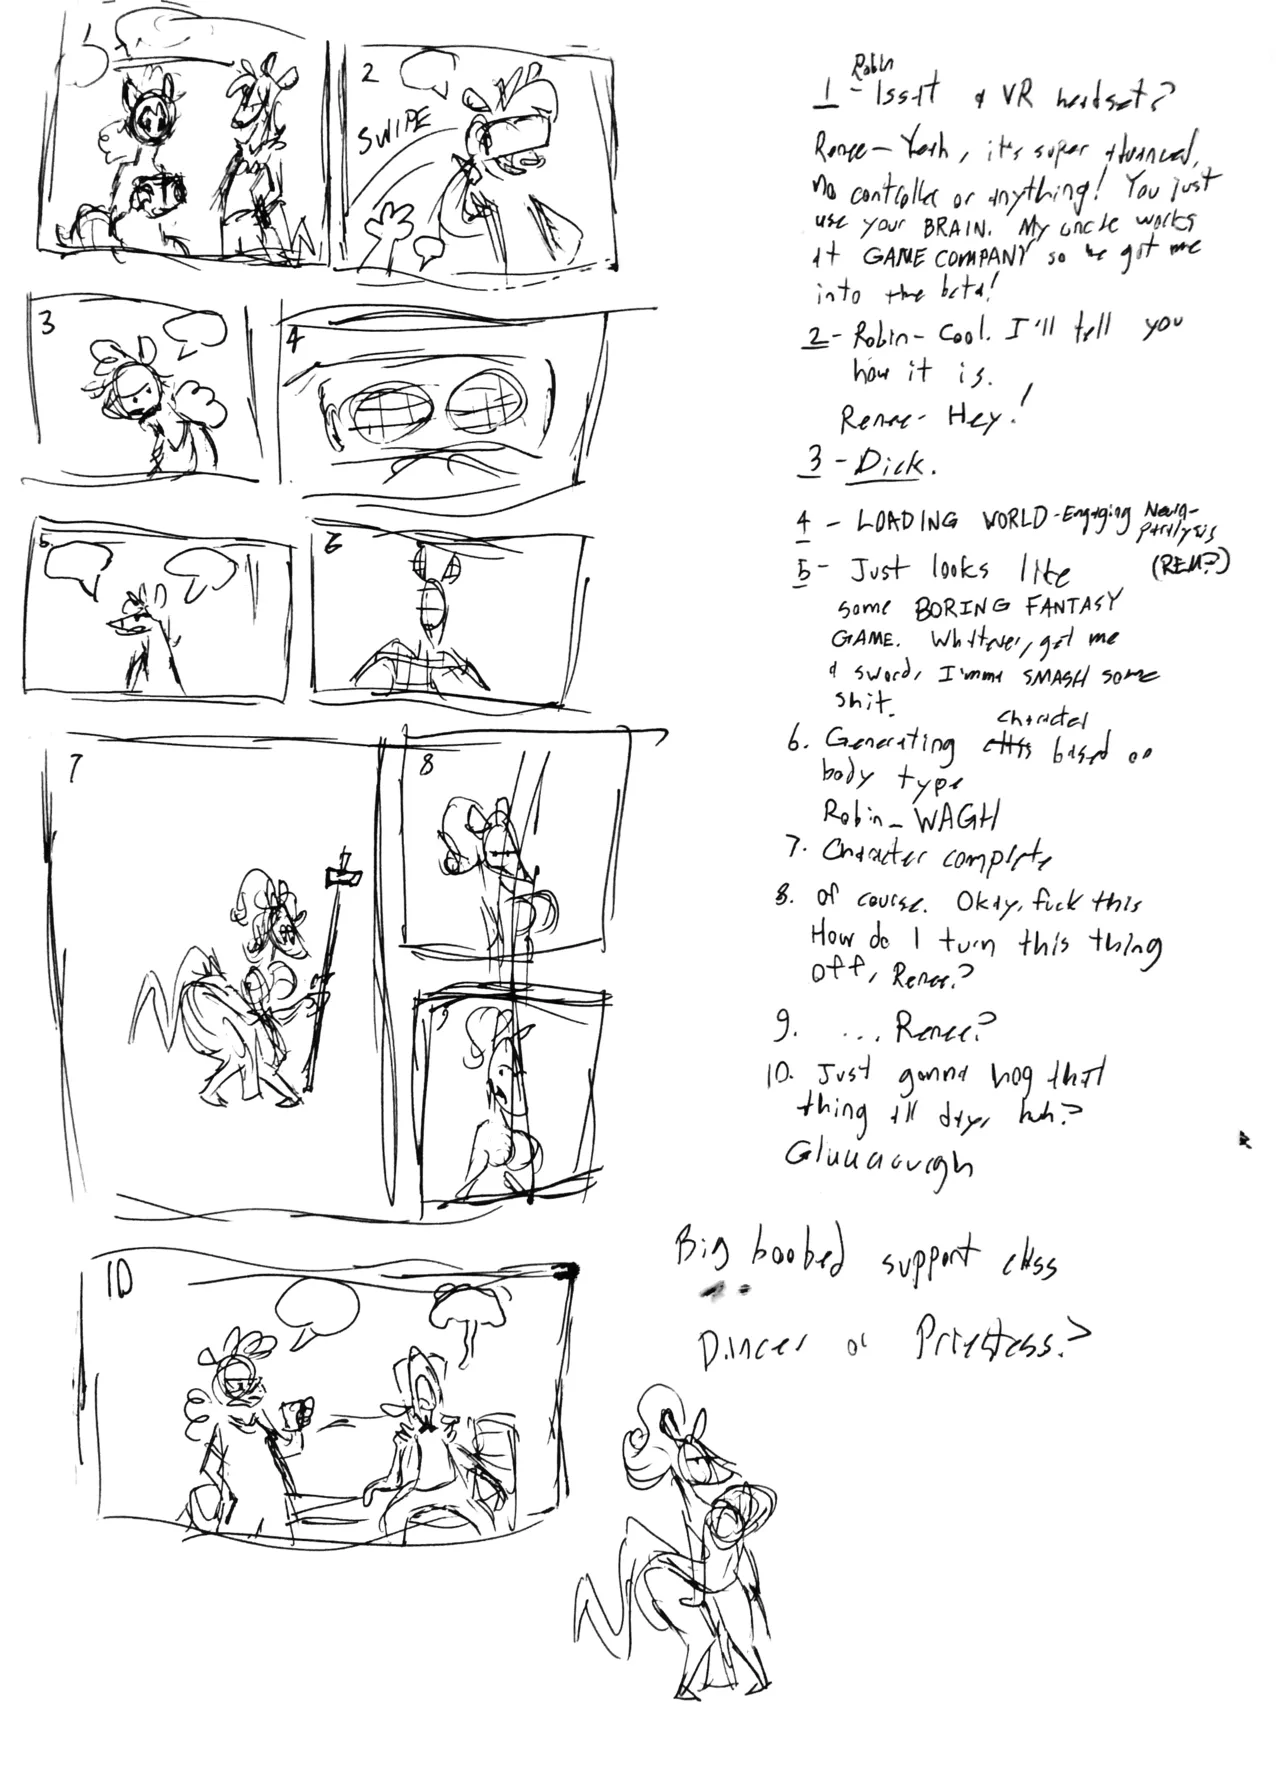 1
2
SWIPE
3
4
5
6
7
8
9
10
Robin
1 - Issit a VR headset?
Renee - Yeah, it's super advanced,
no controller or anything! You just
use your BRAIN. My uncle works
at GAME COMPANY so he got me
into the beta!
2 - Robin - Cool. I'll tell you
how it is.
Renee - Hey!
3 - Dick.
4 - LOADING WORLD - Engaging Neuro-
paralysis
(REM?)
5 - Just looks like
some BORING FANTASY
GAME. Whatever, get me
a sword, I'mma SMASH some
shit.
character
6. Generating class based on
body type
Robin - WAGH
7. Character complete
8. Of course. Okay, fuck this
How do I turn this thing
off, Renee?
9. ... Renee?
10. Just gonna hog that
thing all day, huh?
Gluuuuurgh
Big boobed support class
Dancer or Priestess?